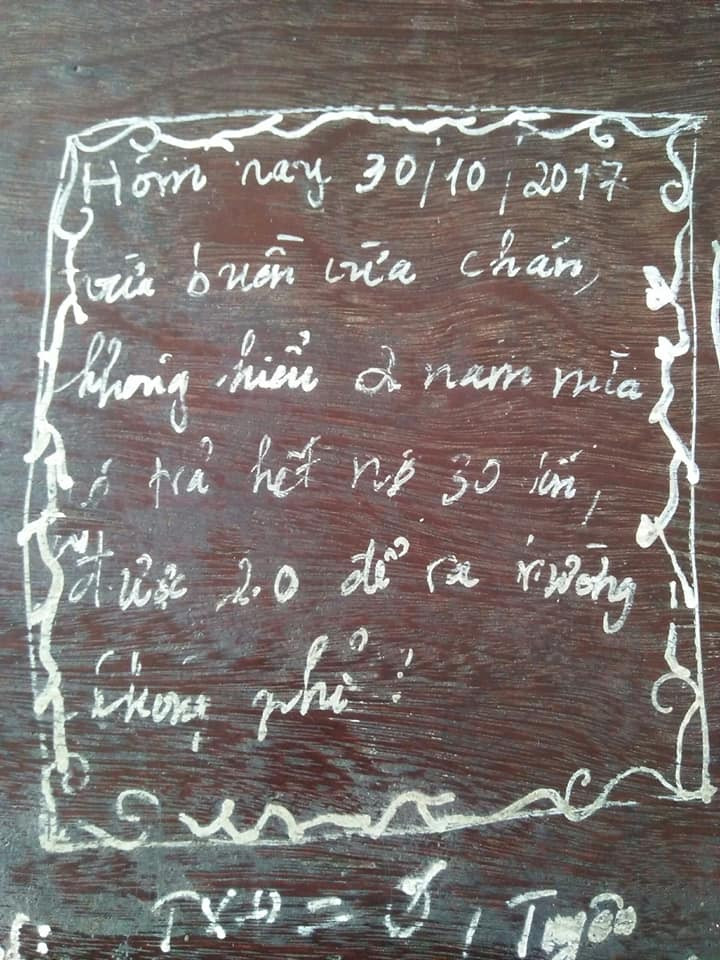 Hôm nay 30/10/2017
vừa buồn vừa chán,
không hiểu 2 năm nữa
có trả hết nợ 30 tín,
được 2.0 để ra trường
không phỉ?
TXD =